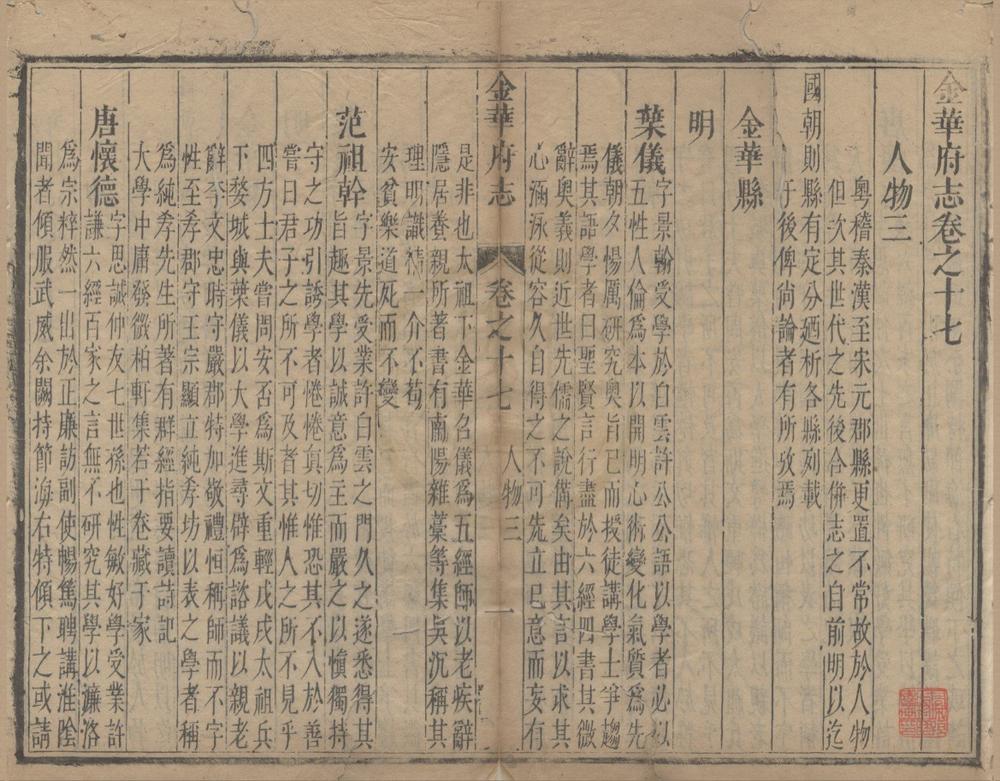 金華府志卷之十七
人物三
粵稽秦漢至宋元郡縣更置不常故於人物
但次其世代之先後合併志之自前明以迄
國朝則縣有定分廼析各縣列載
于後俾尚論者有所攷焉
金華縣
明
葉儀字景翰受學於白雲許公公語以學者必以
五性人倫爲本以開明心術變化氣質爲先
儀朝夕惕厲研究奧旨已而授徒講學士爭趨
焉其語學者曰聖賢言行盡於六經四書其微
辭奧義則近世先儒之說備矣由其言以求其
心涵泳從容久自得之不可先立己意而妄有
金華府志 卷之十七 人物三 一
是非也太祖下金華召儀爲五經師以老疾辭
隱居養親所著書有南陽雜藁等集吳沉稱其
理明識精一介不苟
安貧樂道死而不變
范祖幹字景先受業許白雲之門久之遂悉得其
旨趣其學以誠意爲主而嚴之以愼獨持
守之功引誘學者惓惓眞切惟恐其不入於善
嘗曰君子之所不可及者其惟人之所不見乎
四方士夫嘗問安否爲斯文重輕戊戌太祖兵
下婺城與葉儀以大學進尋辟爲諮議以親老
辭李文忠時守嚴郡特加敬禮恒稱師而不字
性至孝郡守王宗顯立純孝坊以表之學者稱
爲純孝先生所著有群經指要讀詩記
大學中庸發微栢軒集若干卷藏于家
唐懷德字思誠仲友七世孫也性敏好學受業許
謙六經百家之言無不研究其學以濂洛
爲宗粹然一出於正廉訪副使暢篤聘講淮陰
聞者傾服武威余闕持節海右特傾下之或請